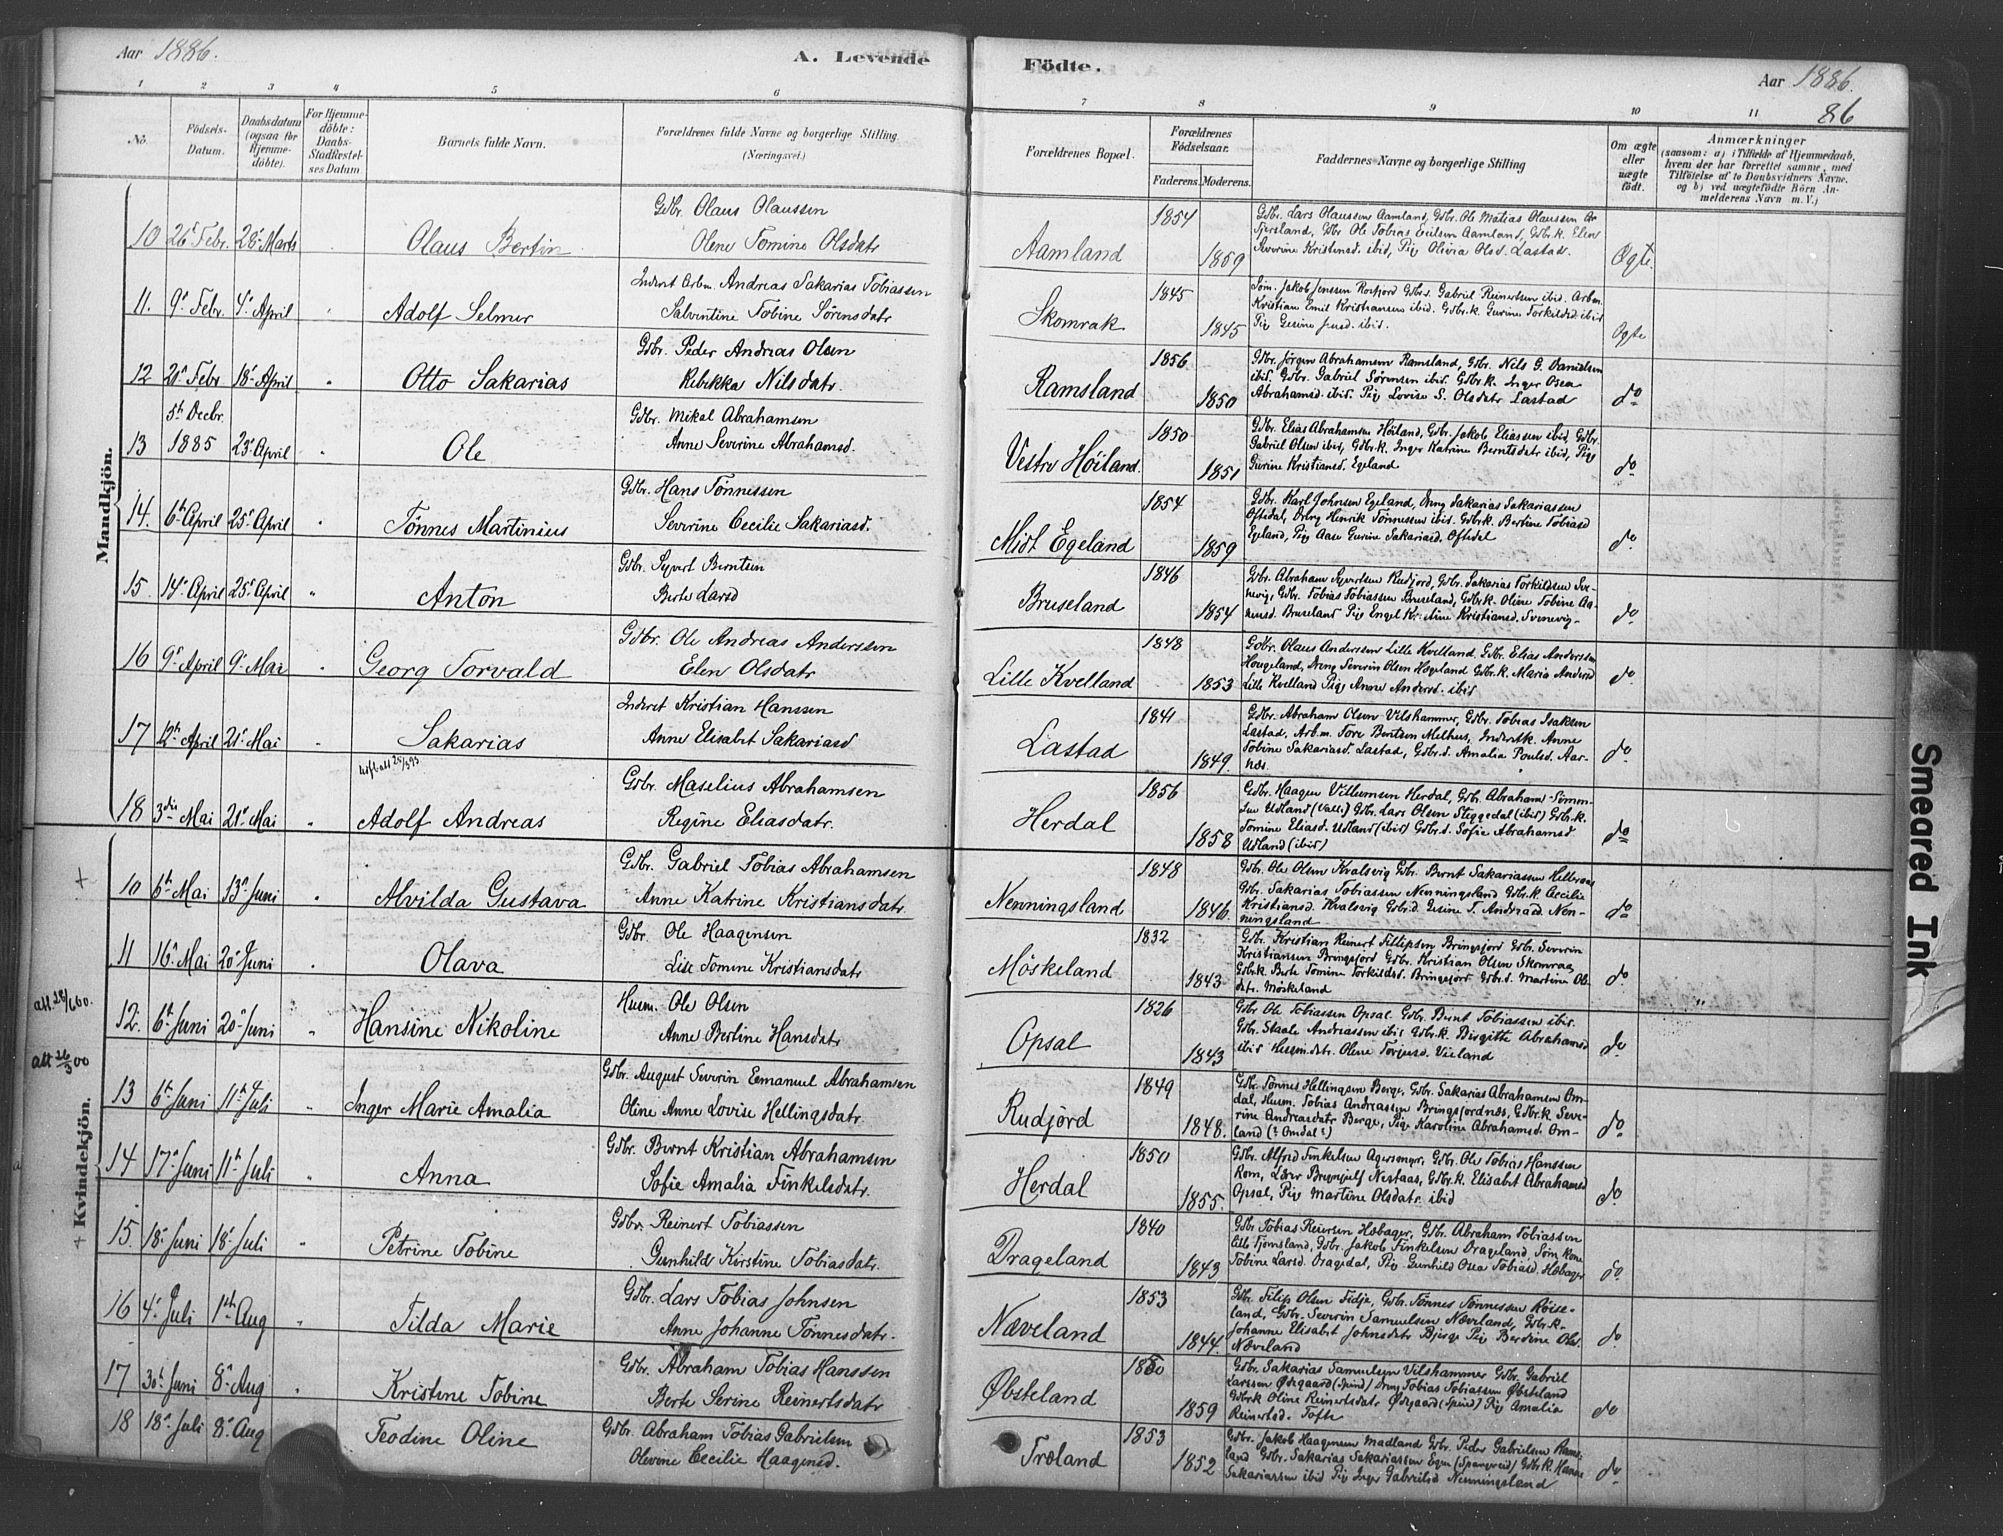 Aar 1886.
A. Levende Födte.
Aar 1886.
86
1 2 3 4 5 6 7 8 9 10 11
No.
Födsels-Datum.
Daabsdatum (ogsaa for Hjemme-döbte).
For Hjemme-döbte: Daabs-Stadfæstel-ses Datum.
Barnets fulde Navn.
Forældrenes fulde Navne og borgerlige Stilling. (Næringsvei.)
Forældrenes Bopæl.
Forældrenes Födselsaar.
Faderens. Moderens.
Faddernes Navne og borgerlige Stilling
Om ægte eller uægte födt.
Anmærkninger
(saasom: a) i Tilfælde af Hjemmedaab, hvem der har forrettet samme, med Tilföielse af to Daabsvidners Navne, og b) ved uægtefödte Börn Anmelderens Navn m. V.)
Mandkjön.
10 26' Febr. 28' Marts Olaus Bertin Gdbr. Olaus Olaussen
Olene Tomine Olsdatr Aamland 1854 1859
Gdbr. Lars Olaussen Aamland, Gdbr. Ole Matias Olaussen
Gdbr Ole Tobias Aamland, Gdbr. k. Elen
Severine Kristensd. ibid, Pig Olivia Olsd. Lastad. Ægte.
11. 9' Febr. 4' April Adolf Selmer Inderst Arbm. Andreas Sakarias Tobiassen
Salvintine Tobine Sörensdatr Skomrak 1845 1845
Söm. Jakob Jenssen Rosfjord Gdbr. Gabriel Reinertsen ibid. Arbm.
Kristian Emil Kristiansen ibid. Gdbr.k. Gurine Torkildsd. ibid
Pig Gesine ibid. Ægte
12 21' Febr 18' April Otto Sakarias Gdbr. Peder Andreas Olsen
Rebekka Nilsdatr. Ramsland 1856 1850
Gdbr. Jörgen Abrahamsen Ramsland, Gdbr. Nils G. Danielsen
ibid. Gdbr. Gabriel Sörensen ibid. Gdbr.k. Inger Osea
Abrahamsd. ibid. Pig Lovise S. Olsdatr Lastad do
13 5th Decbr. 1885 23' April Ole Gdbr. Mikal Abrahamsen
Anne Severine Abrahamsd. Vestre Höiland 1850 1851
Gdbr. Elias Abrahamsen Höiland, Gdbr. Jakob Eliassen ibid, Gdbr.
Gabriel Olsen ibid, Gdbr.k. Inger Katrine Berntsdatr ibid, Pig
Gurine Kristiansd. Egeland do
14. 6th April 25' April Tönnes Martinius Gdbr. Hans Tönnessen
Severine Cecilie Sakariasd. Midt Egeland 1854 1859
Gdbr. Karl Johnsen Egeland, Dreng Sakarias Sakariassen
Oftedal, Dreng Henrik Tönnessen ibid. Gdbr.k. Bertine Tobiasd
Egeland, Pig Aase Gurine Sakariasd. Oftedal do
15. 14' April 25' April Anton Gdbr. Syvert Berntsen
Berte Larsd Bruseland 1846 1854
Gdbr. Abraham Syvertsen Rudjord, Gdbr. Sakarias Torkildsen Sve-
nevig, Gdbr. Tobias Tobiassen Bruseland, Gdbr.k. Oline Tobine Aa-
Bruseland Pig Engel Kristiansd. Svenevig do
16 9' April 9' Mai Georg Torvald Gdbr. Ole Andreas Anderssen
Elen Olsdatr Lille Kvelland 1848 1853
Gdbr. Olaus Anderssen Lille Kvelland Gdbr. Elias Anderssen
Haugeland, Dreng Severin Olsen Hegeland Gdbr.k. Maria Andersd
Lille Kvelland Pig Anne Andersd. ibid do
17 12th April 21' Mai Sakarias Inderst Kristian Hanssen
Anne Elisabet Sakariasd Lastad 1841 1849.
Gdbr. Abraham Olsen Vilshammer, Gdbr. Tobias Isaksen
Lastad, Arb.m. Tore Berntsen Melhus, Inderstk. Anne
Tobine Sakariasd. Lastad, Gdbr.d. Amalia Poulsd. Aar-
nes. do
18 3die Mai 21' Mai Adolf Andreas Gdbr. Maselius Abrahamsen
Regine Eliasdatr. Herdal 1856 1858
Gdbr. Haagen Villumsen Herdal, Gdbr. Abraham Simon-
sen Udland (Valle) Gdbr. Lars Olsen Steggedal (ibid) Gdbr.k.
Tomine Eliasd. Udland (ibid) Gdbr.d. Sofie Abrahamsd.
Udland (ibid) do
Kvindekjön.
+ 10 6th Mai 13' Juni Alvilda Gustava Gdbr. Gabriel Tobias Abrahamsen
Anne Katrine Kristiansdatr. Nenningsland 1848 1846.
Gdbr. Ole Olsen Kvalsvig Gdbr. Bernt Sakariassen Helleraas
Gdbr. Sakarias Tobiassen Nenningsland Gdbr.k. Cecilie
Kristiansd. Kvalsvig Gdbr.d. Gesine T. Andreasd Nen-
ningsland do
11 16' Mai 20' Juni Olava Gdbr. Ole Haagensen
Lise Tomine Kristiansdatr Möskeland 1832 1843
Gdbr. Kristian Reinert Fillipsen Bringsjord Gdbr. Severin
Kristiansen Bringsjord Gdbr. Kristian Olsen Skomrak
Gdbr.k. Berte Tomine Torkildsd. Bringsjord Gdbr.d. Martine Ols
datr. Möskeland do
att. 28/6 00.
12. 6th Juni 20' Juni Hansine Nikoline Husm. Ole Olsen
Anne Bertine Hansdatr Opsal 1826 1843
Gdbr Ole Tobiassen Opsal Gdbr. Bernt Tobiassen ibid.
Gdbr. Staale Andreassen ibid Gdbr.k. Birgitte Abrahamsd
ibid Husm.datr. Olene Torjusd. Vieland do
att 26/5 00
13 6th Juni 11th Juli Inger Marie Amalia Gdbr. August Severin Emanuel Abrahamsen
Oline Anne Lovise Hellingsdatr. Rudjord 1849 1848.
Gdbr. Tönnes Hellingsen Berge, Gdbr. Sakarias Abrahamsen Om-
dal, Husm. Tobias Andreassen Bringsjordnes, Gdbr.k Seve-
rine Andreasdatr Berge, Pige Karoline Abrahamsd. Om-
land (: Omdal :) do
14 17' Juni 11th Juli Anna Gdbr. Bernt Kristian Abrahamsen
Sofie Amalia Finkelsdatr. Herdal 1850 1855.
Gdbr. Alfred Finkelsen Agersmyr, Gdbr. Ole Tobias Hanssen
Rom, Lærer Brynjulf Nestaas, Gdbr.k. Elisabet Abrahamsd
Opsal, Pig Martine Olsdatr. ibid do
+ 15. 18' Juni 18' Juli Petrine Tobine Gdbr. Reinert Tobiassen
Gunhild Kirstine Tobiasdatr. Drageland 1840 1843
Gdbr Tobias Reiersen Hæbager, Gdbr. Abraham Tobiassen
Lille Tjomsland, Gdbr. Jakob Finkelsen Drageland, Söm. Kone
Tobine Larsd. Dragedal, Pig Gunhild Osea Tobiasd. Hæbager do.
16 4' Juli 1ste Aug Tilda Marie Gdbr. Lars Tobias Johnsen
Anne Johanne Tönnesdatr. Næveland 1853 1844.
Gdbr. Filip Olsen Fidje, Gdbr. Tönnes Tönnessen Röise-
land, Gdbr. Severin Samuelsen Næveland, Gdbr.k.
Johanne Elisabet Johnsdatr Bjerge Pig Berdine Olsd.
Næveland do
17 30' Juni 8' Aug Kristene Tobine Gdbr. Abraham Tobias Hanssen
Berte Serine Reinertsdatr Øbsteland 1850 1859
Gdbr. Sakarias Samuelsen Vilshammer Gdbr. Gabriel
Larssen Ødegaard (Spind) Dreng Tobias Tobiassen Øbsteland
Gdbr.k Oline Reinertsdatr Ødegaard (Spind) Pig Amalia
Reinertsd. Tofte do
18 18' Juli 8' Aug Teodine Oline Gdbr. Abraham Tobias Gabrielsen
Olevine Cecilie Haagensd. Træland 1853 1852
Gdbr. Jakob Haagensen Madland Gdbr. Peder Gabrielsen Rams-
land Gdbr. Sakarias Sakariassen Egen (Spangereid) Gdbr.k. Hanne
Sakariassen ibid Pig Inger Gabrielsd Nenningsland do
Smeared Ink